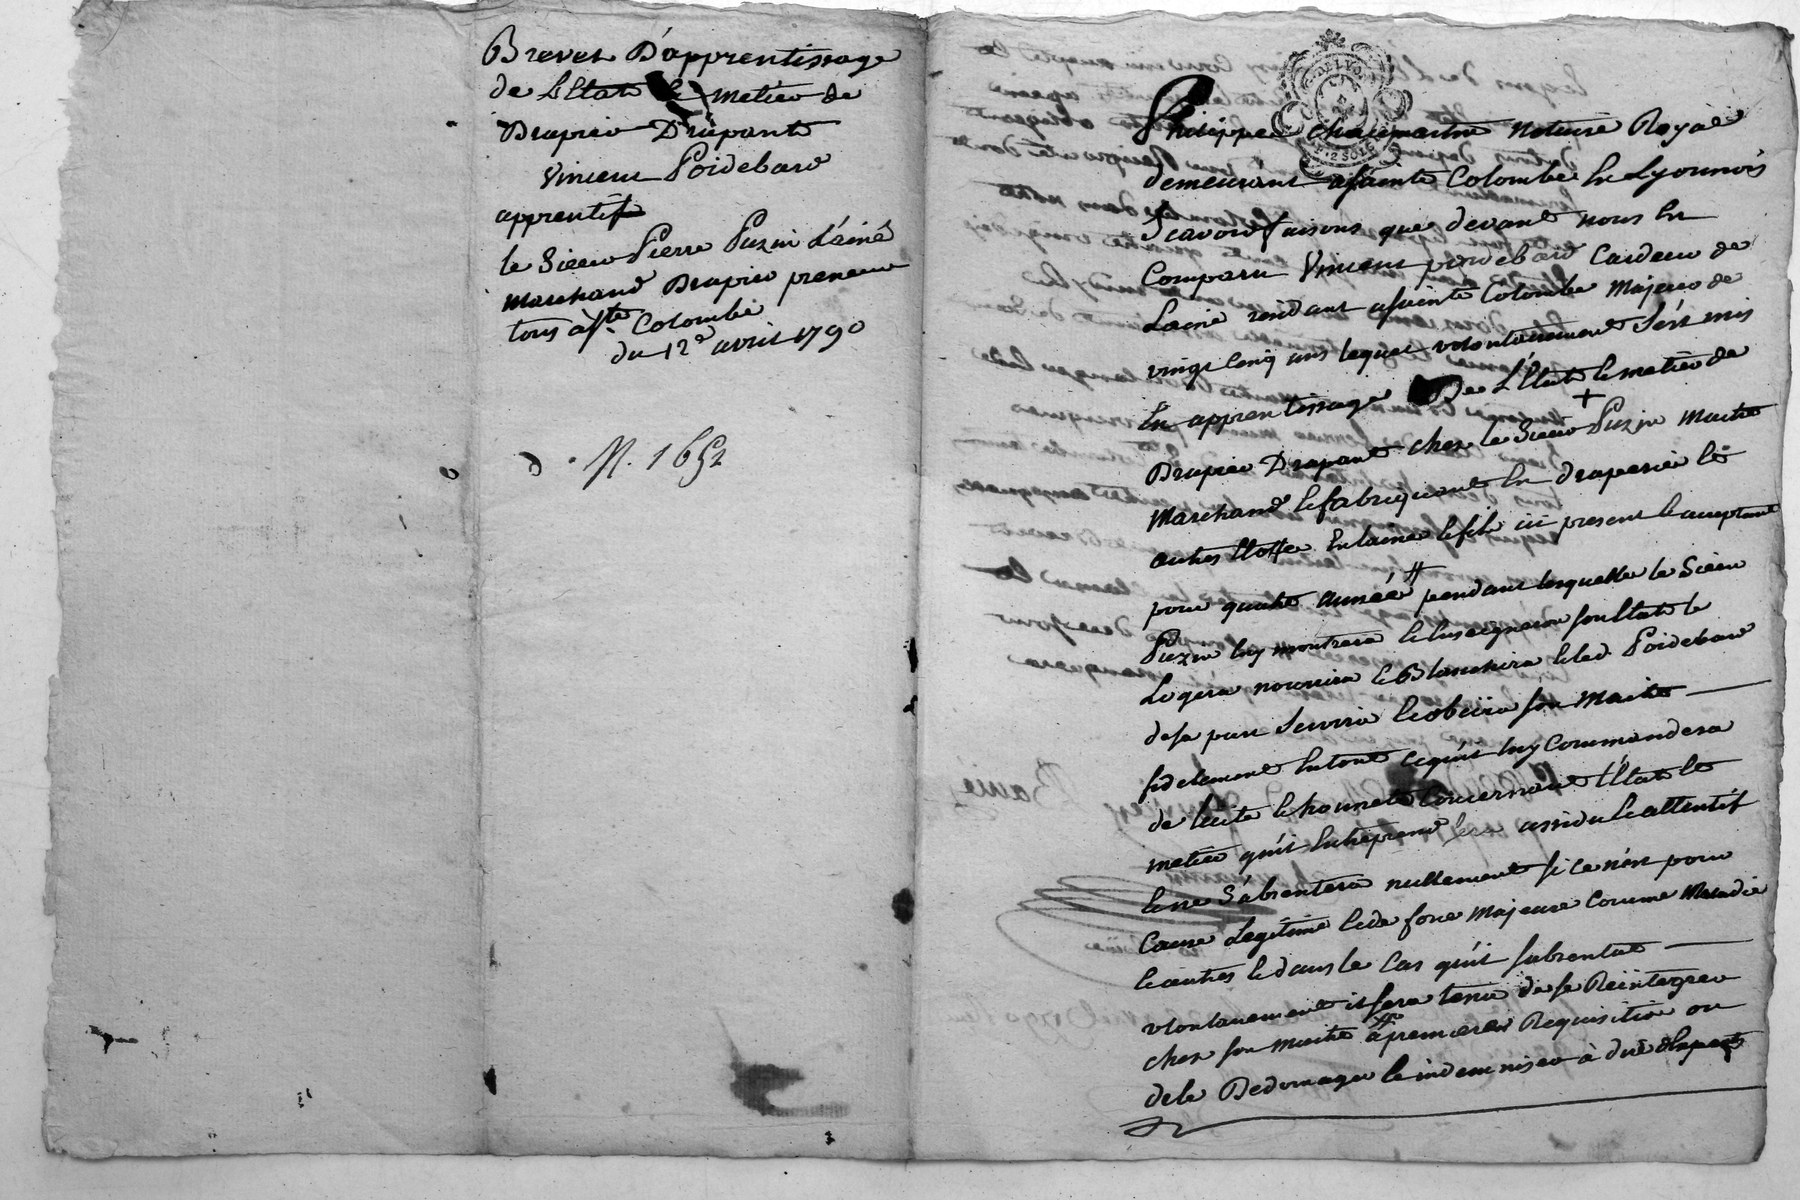 Brevet D'apprentissage
de L'Etat et metier de
Drapier Drapant
Vincent Poidebard
apprentif
le Sieur Pierre Puzin L'ainé
Marchand Drapier preneur
tous à Ste Colombe
du 12e avril 1790
N. 1652
Philippe Chaumartin Notaire Royal
demeurant asainte Colombe En Lyonnois
Scavoir faisons que devant nous En
Comparu Vincent poidebard Cardeur de
Laine residant asainte Colombe Majeur de
vingt cinq ans lequel volontairement s'est mis
En apprentissage De L'Etat et metier de
Drapier Drapant chez le Sieur Puzin Maitre
Marchand et fabriquant En draperie et
autres Etoffe En laine le fils ici present et acceptant
pour quatre année pendant lesquelle le Sieur
Puzin luy montrera et Enseignera son Etat le
Logera nourrira et Blanchira et led Poidebard
de sa part Servira et obeira son Maitre
fidelement En tout ce qu'il luy Commandera
de licite et honnete Concernant l'Etat et
metier qu'il Entreprend sera assidu et attentif
et ne s'absentera nullement si ce n'est pour
Cause Legitime et de force Majeure Comme Maladie
et autres et dans le Cas qu'il s'absentat
volontairement il sera tenu de se Reintegrer
chez son maitre a premiere Requisition ou
de le Dedomager et indemniser à dire d'Experts